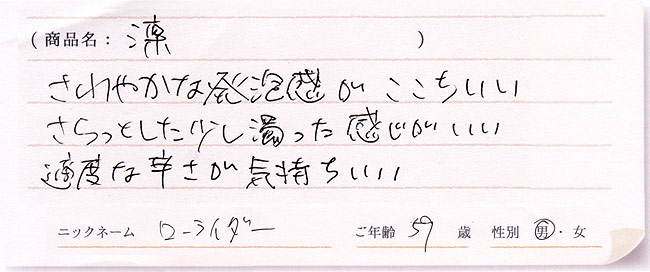 (商品名: 凜 )
さわやかな発泡感が ここちいい
さらっとした少し濁った感じがいい
適度な辛さが気持ちいい
ニックネーム ローライダー ご年齢 59 歳 性別 男・女